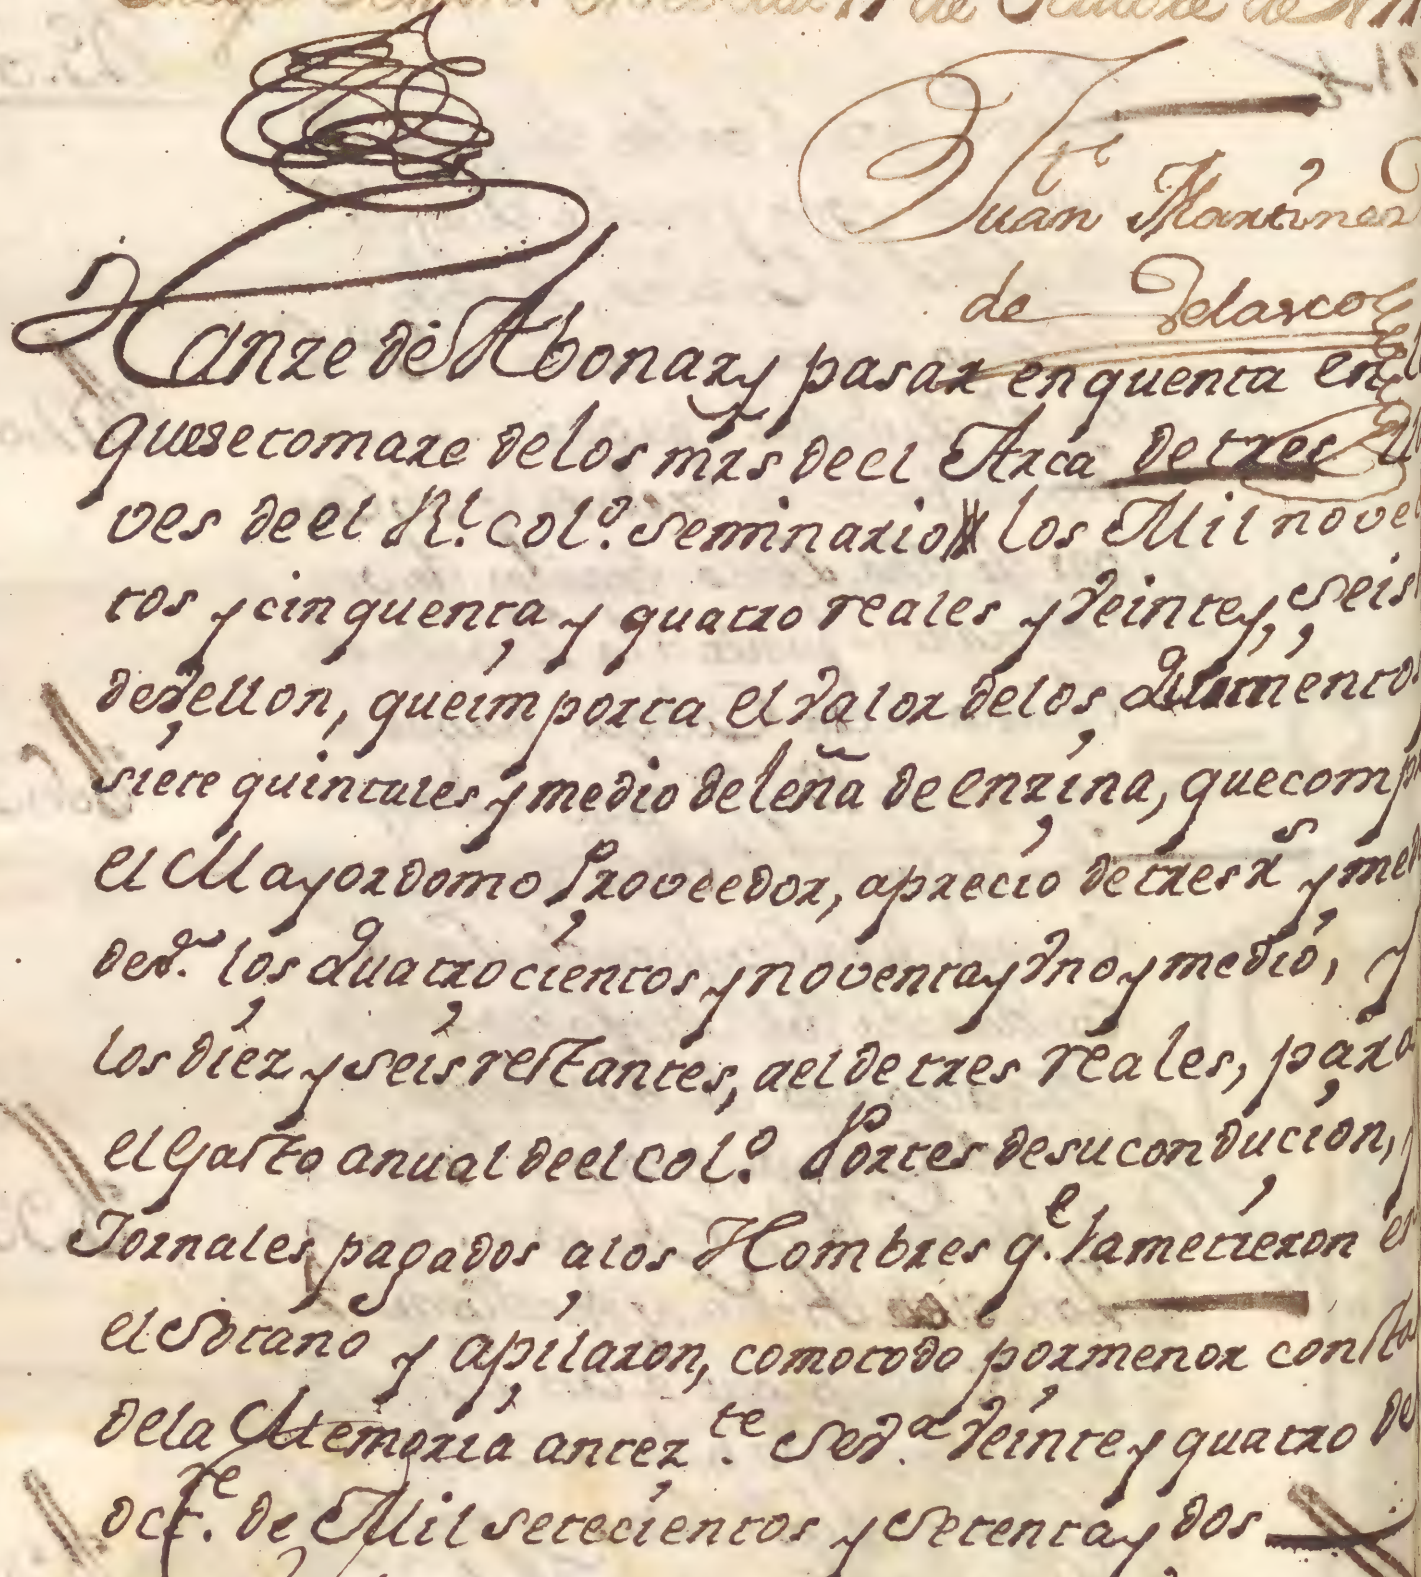 de Octubre de 177
Jtt
Juan Martinez
de Velasco
Hanze de Abonar y pasar en quenta en l
que se tomare de los mrs de el Arca de tres lla
ves de el Rl. Col.º Seminario los Mil nove
tos y cinquenta y quatro reales y veinte y seis
de vellon, que importa el valor de los Quinientos
siete quintales y medio de leña de enzina, que comp
el Mayordomo Proveedor, a precio de tres rs y med
de v.n los quatrocientos y noventa y vno y medio, y
los diez y seis restantes, a el de tres reales, para
el Gasto anual de el Col.º Portes de su conducion, y
Jornales pagados a los Hombres q.e la metieron en
el Sotano y apilaron, como todo por menor consta
de la Memoria anter.te Sev.a Veinte y quatro de
oct.re de Mil setecientos y setenta y dos